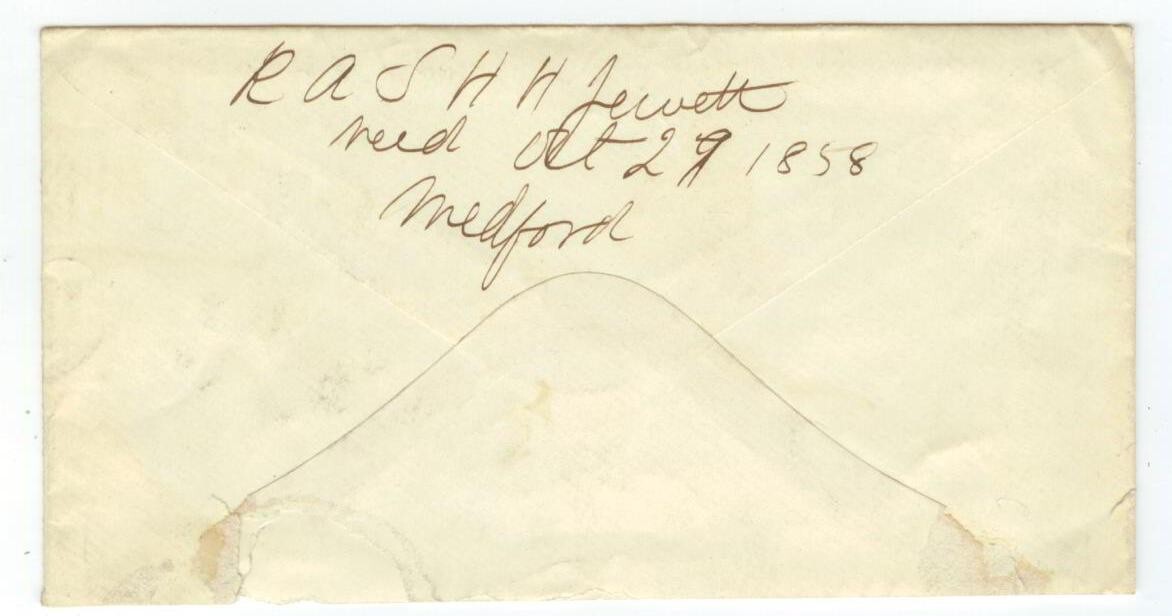 R A S H H Jewett
recd Oct 29 1858
Medford